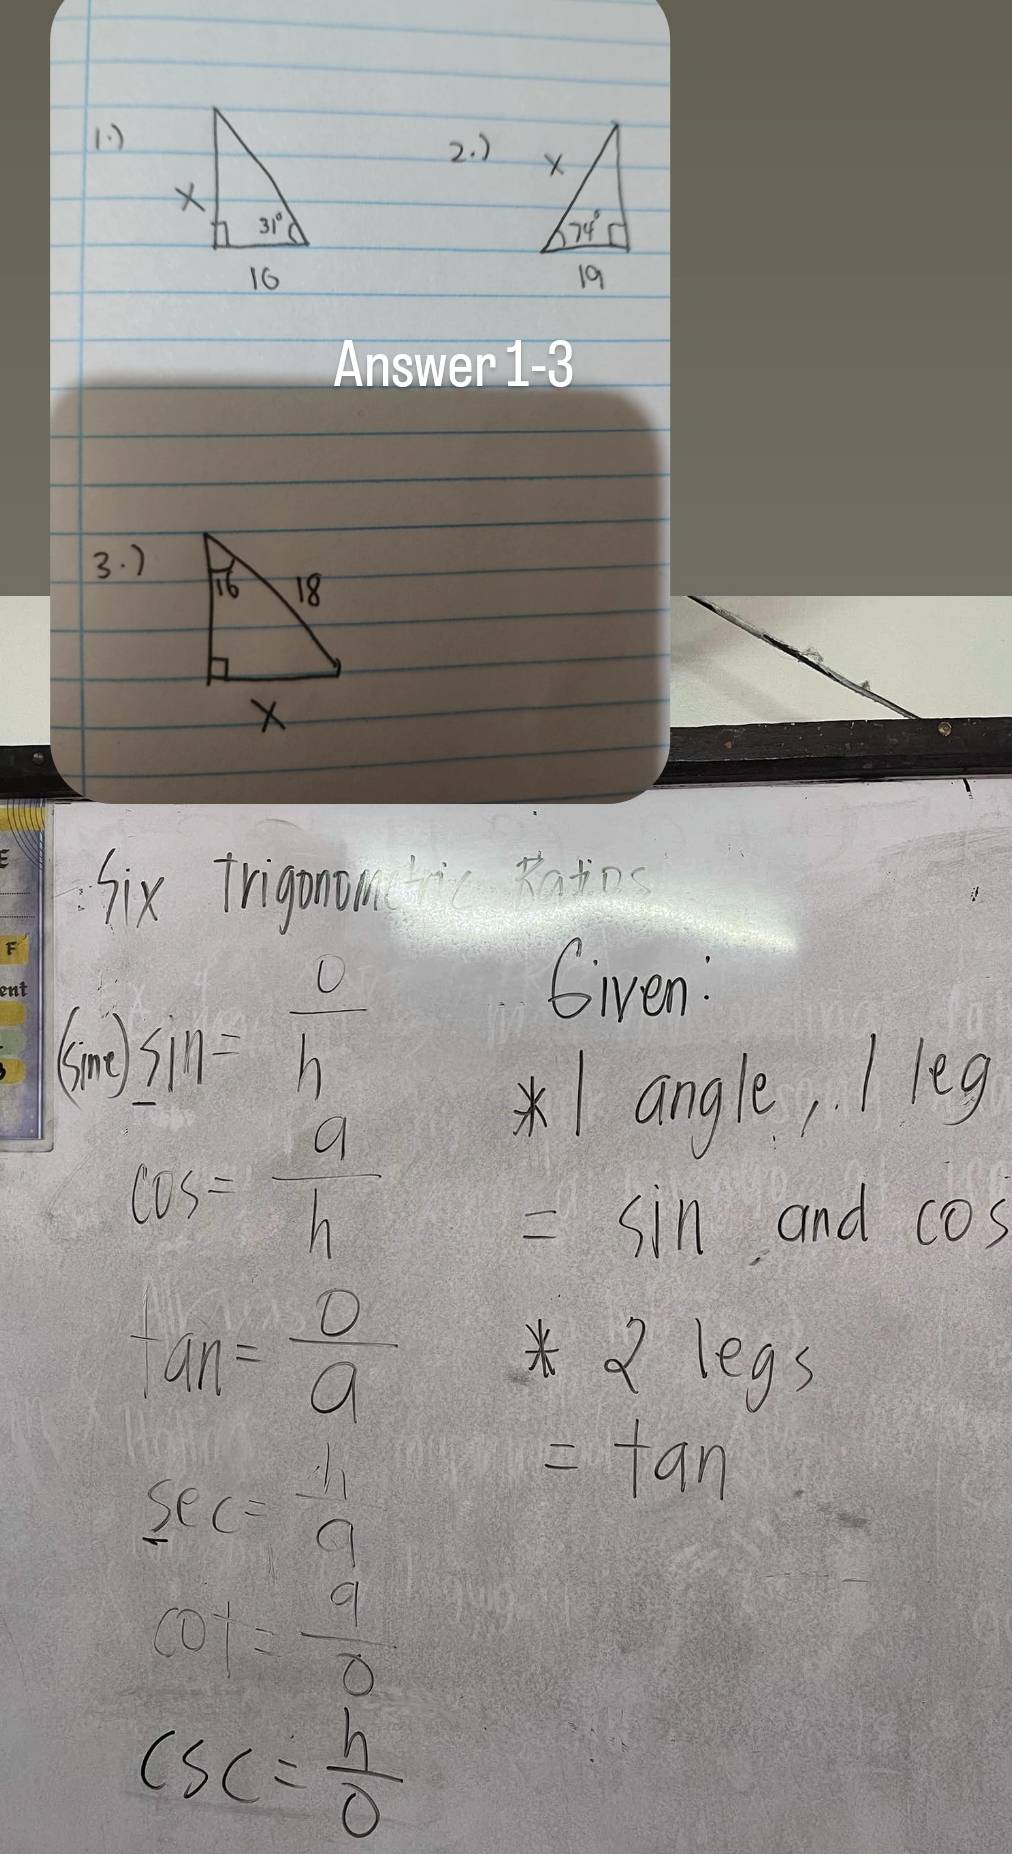 1.)
X
31°
10
2.)
X
74°
19
Answer 1-3
3.)
16
18
X
E
F
ent
Six Trigonometric Ratios
(sine) sin = o/h
cos = a/h
tan = o/a
sec = h/a
cot = a/o
csc = h/o
Given:
* 1 angle, 1 leg
= sin and cos
* 2 legs
= tan